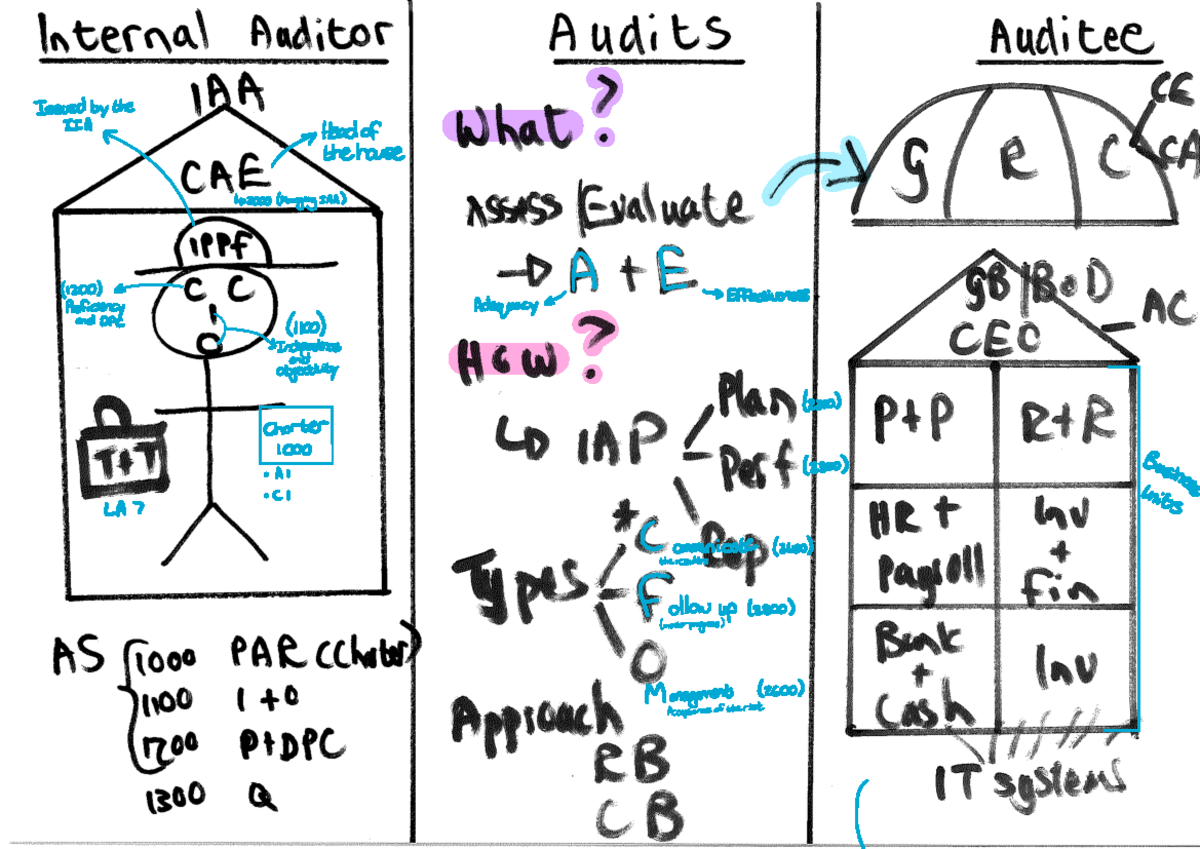 Internal Auditor
IAA
Issued by the
IIA
Head of
the house
CAE
IPPF
(1200)
Proficiency
and DPC
C C
I
O
(1100)
Independence
and
objectivity
Charter
1000
• A1
• C1
T+T
LA 7
AS
1000 PAR (Charter)
1100 I + O
1200 P+DPC
1300 Q
Audits
What?
Assess/Evaluate
A + E
Adequacy
Effectiveness
How?
IAP
Plan
Perf
Rep
Types
*
C
F
ollow up
O
Management (2600)
Approach
RB
CB
Auditee
CE
CA
G R C
GB/BoD
CEO
AC
P+P
R+R
HR +
Payroll
Inv
+
Fin
Bank
+
Cash
Inv
Business
units
IT systems